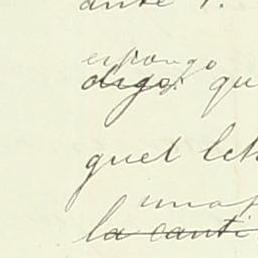 ante
espongo
digo: qu
quel
una
la canti